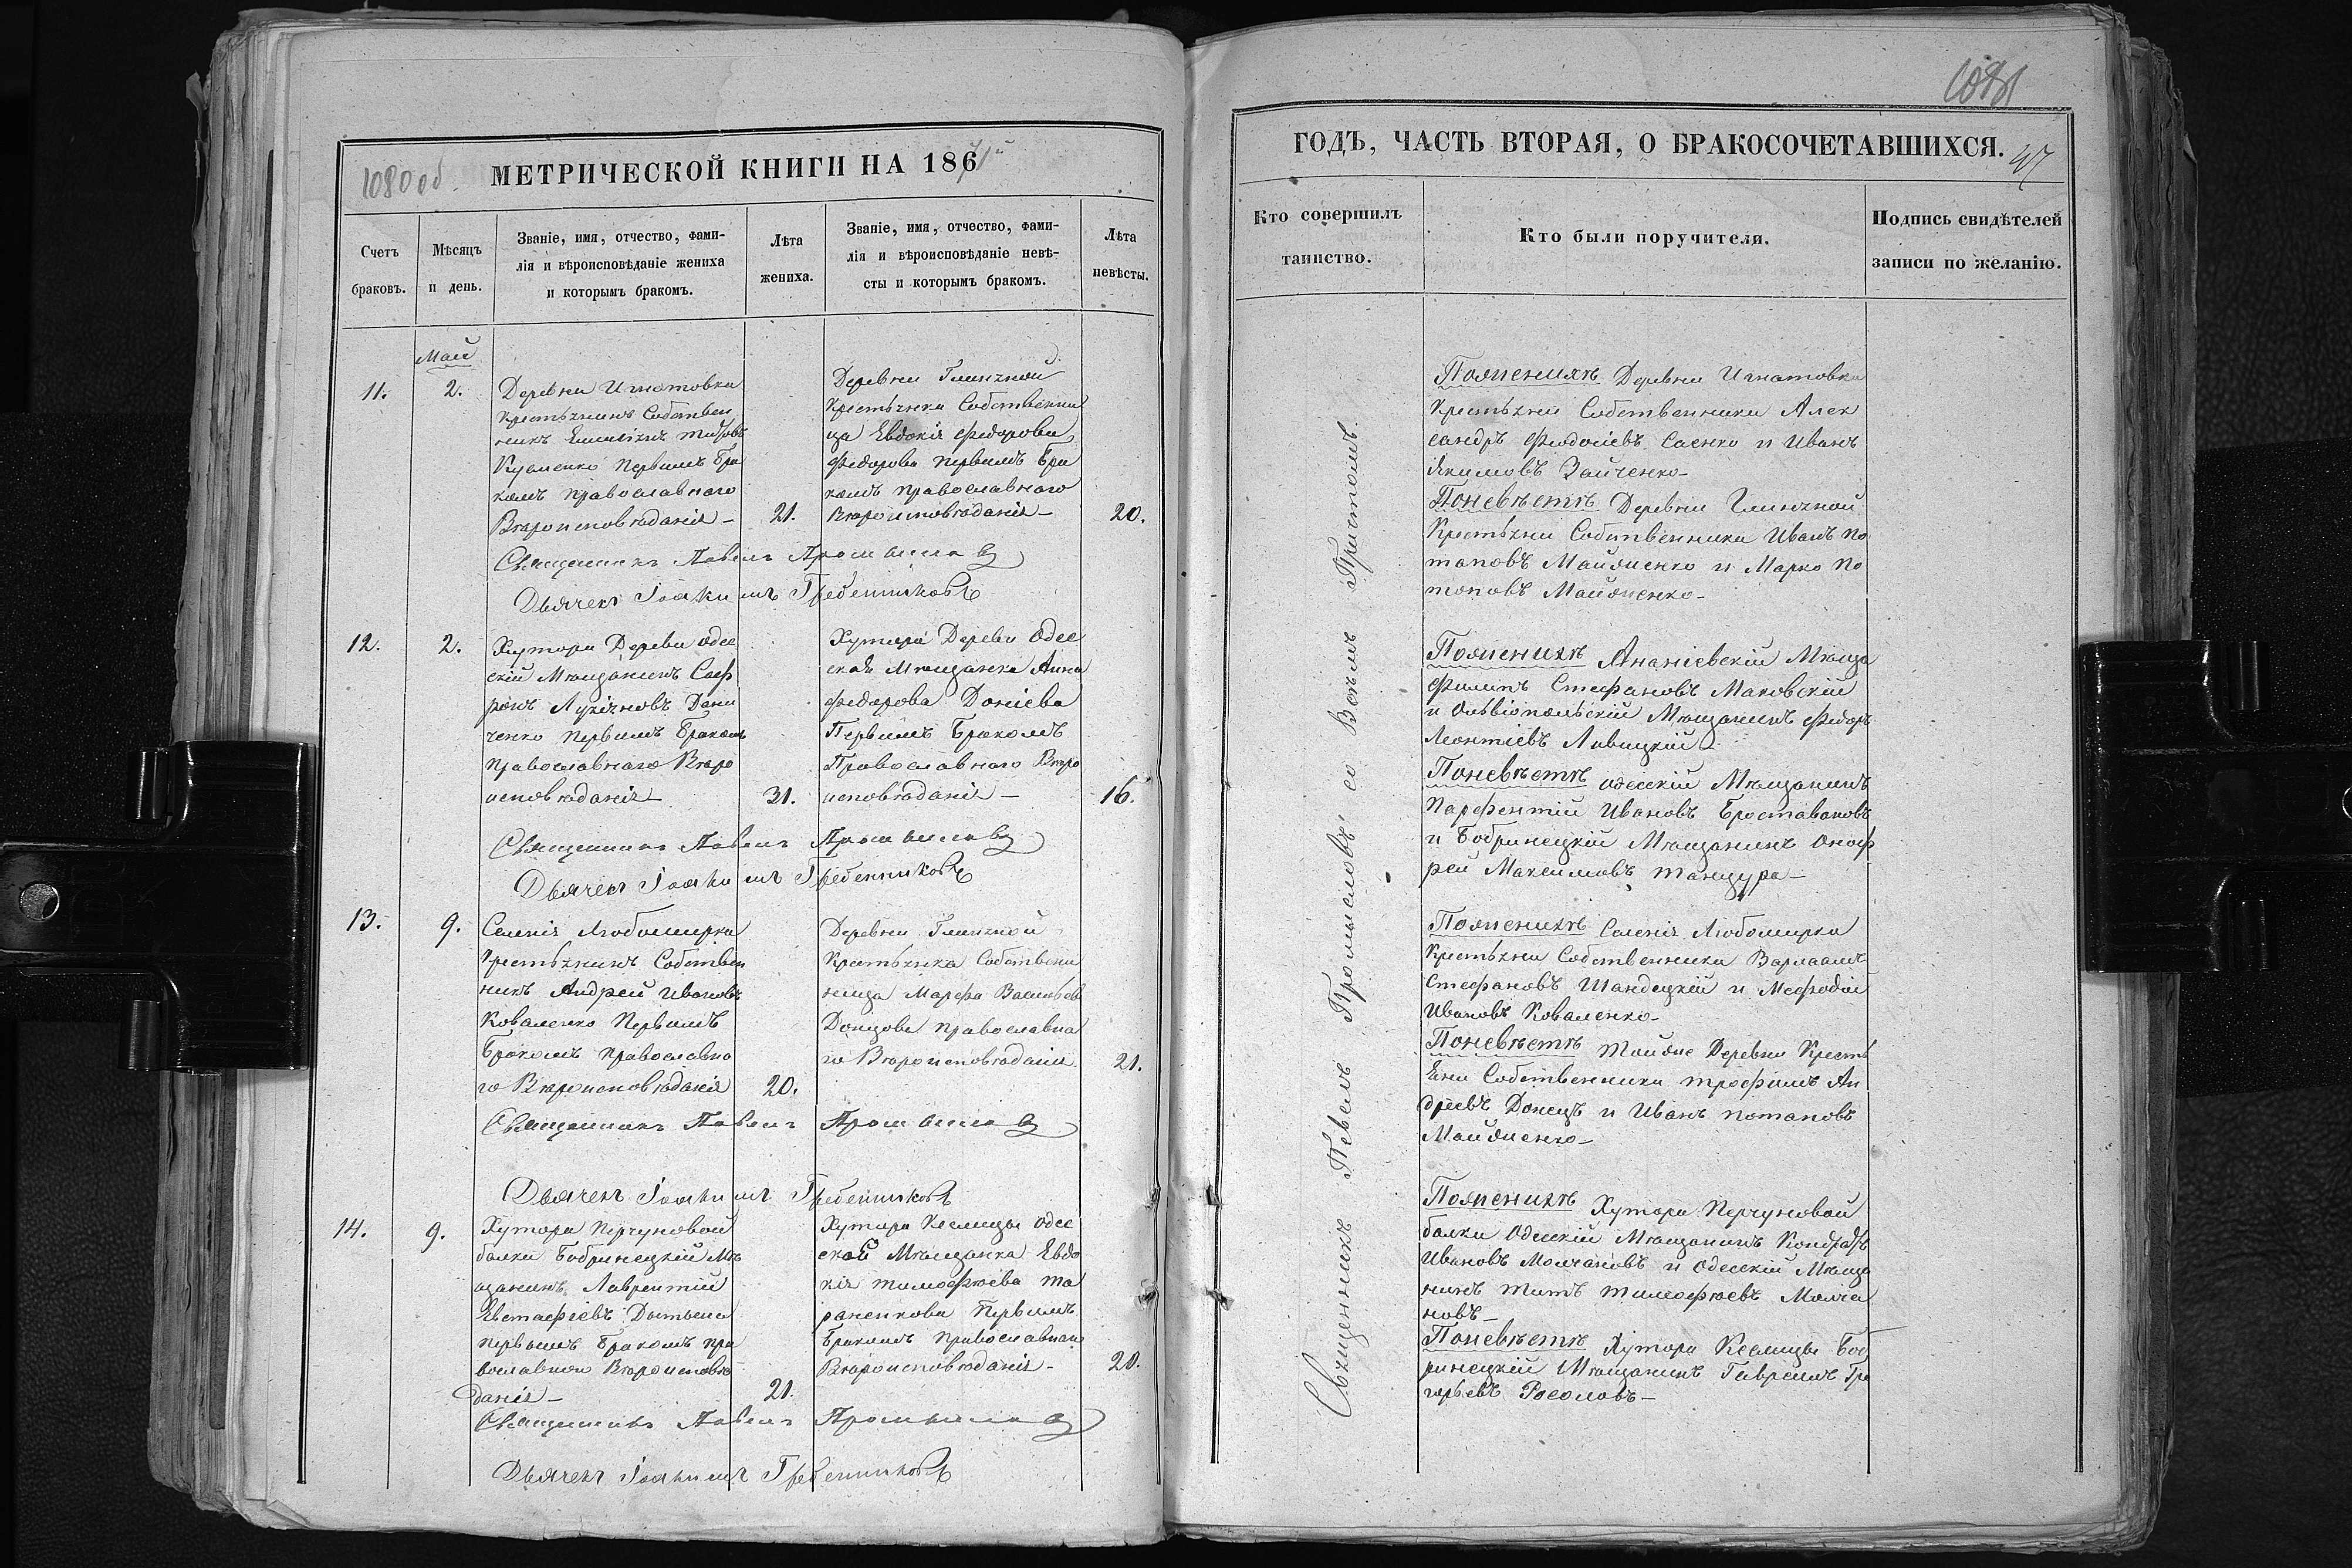 1080 об.
МЕТРИЧЕСКОЙ КНИГИ НА 1871й
Счетъ браковъ.
Мѣсяцъ и день.
Званіе, имя, отчество, фами-
лія и вѣроисповѣданіе жениха
и которымъ бракомъ.
Лѣта жениха.
Званіе, имя, отчество, фами-
лія и вѣроисповѣданіе невѣ-
сты и которымъ бракомъ.
Лѣта невѣсты.
Май
11.
2.
Деревни Игнатовки
Крестьянинъ Собствен
никъ Титовъ
Кузменко Первымъ Бра
комъ Православнаго
Вѣроисповѣданія –
21.
Деревни Глиняной
Крестьянка Собственни
ца Евдокія Федорова
Федорова Первымъ Бра
комъ Православнаго
Вѣроисповѣданія –
20.
Священникъ Павелъ Промысловъ
Дьячекъ Іоакимъ Гребенниковъ
12.
2.
Хутора Дереви Одес
скій Мѣщанинъ Соф
ронъ Лукіяновъ Дани
ченко Первымъ Бракомъ
Православнаго Вѣро
исповѣданія
31.
Хутора Дереви Одес
ская Мѣщанка Анна
Федорова Доніева
Первымъ Бракомъ
Православнаго Вѣро
исповѣданія –
16.
Священникъ Павелъ Промысловъ
Дьячекъ Іоакимъ Гребенниковъ
13.
9.
Селенія Любомирки
Крестьянинъ Собствен
никъ Андрей Ивановъ
Коваленко Первымъ
Бракомъ Православна
го Вѣроисповѣданія
20.
Деревни Глиняной
Крестьянка Собственн
ница Марфа Васильев
Донцова Православна
го Вѣроисповѣданія
21.
Священникъ Павелъ Промысловъ
Дьячекъ Іоакимъ Гребенниковъ
14.
9.
Хутора Перчуновой
балки Бобринецкій Мѣ
щанинъ Лаврентій
Евстафіевъ
Первымъ Бракомъ Пра
вославнаго Вѣроисповѣ
данія –
21.
Хутора Кеслицы Одес
ской Мѣщанка Евдо
кія Тимофѣева Та
раненкова Первымъ
Бракомъ Православнаго
Вѣроисповѣданія –
20.
Священникъ Павелъ Промысловъ
Дьячекъ Іоакимъ Гребенниковъ
1081
ГОДЪ, ЧАСТЬ ВТОРАЯ, О БРАКОСОЧЕТАВШИХСЯ.
47
Кто совершилъ
таинство.
Кто были поручители.
Подпись свидѣтелей
записи по желанію.
Священникъ Павелъ Промысловъ со Причтомъ
Поженихѣ Деревни Игнатовки
Крестьяни Собственники Алек
сандръ Феодосіевъ Саенко и Иванъ
Якимовъ Зайченко –
Поневѣстѣ Деревни Глиняной
Крестьяни Собственники Иванъ По
таповъ Майженко и Марко По
таповъ Майженко –
Поженихѣ Ананіевскій Мѣща
Филипъ Стефановъ Маковскій
и Ольвіопольскій Мѣщанинъ Федоръ
Леонтіевъ Ливицкій –
Поневѣстѣ Одесскій Мѣщанинъ
Парфентій Ивановъ
и Бобринецкій Мѣщанинъ Оноф
рей Максимовъ Танцура –
Поженихѣ Селенія Любомирки
Крестьяни Собственники Варлаамъ
Стефановъ Шандецкій и Мефодій
Ивановъ Коваленко –
Поневѣстѣ Тойже Деревни Кресть
яни Собственники Трофимъ Ан
дреевъ Донецъ и Иванъ Потаповъ
Майженко –
Поженихѣ Хутора Перчуновой
балки Одесскій Мѣщанинъ Кондратъ
Ивановъ Молчановъ и Одесскій Мѣща
нинъ Титъ Тимофѣевъ Молча
новъ –
Поневѣстѣ Хутора Кеслицы Боб
ринецкій Мѣщанинъ Гавріилъ Гри
горьевъ Росоловъ –